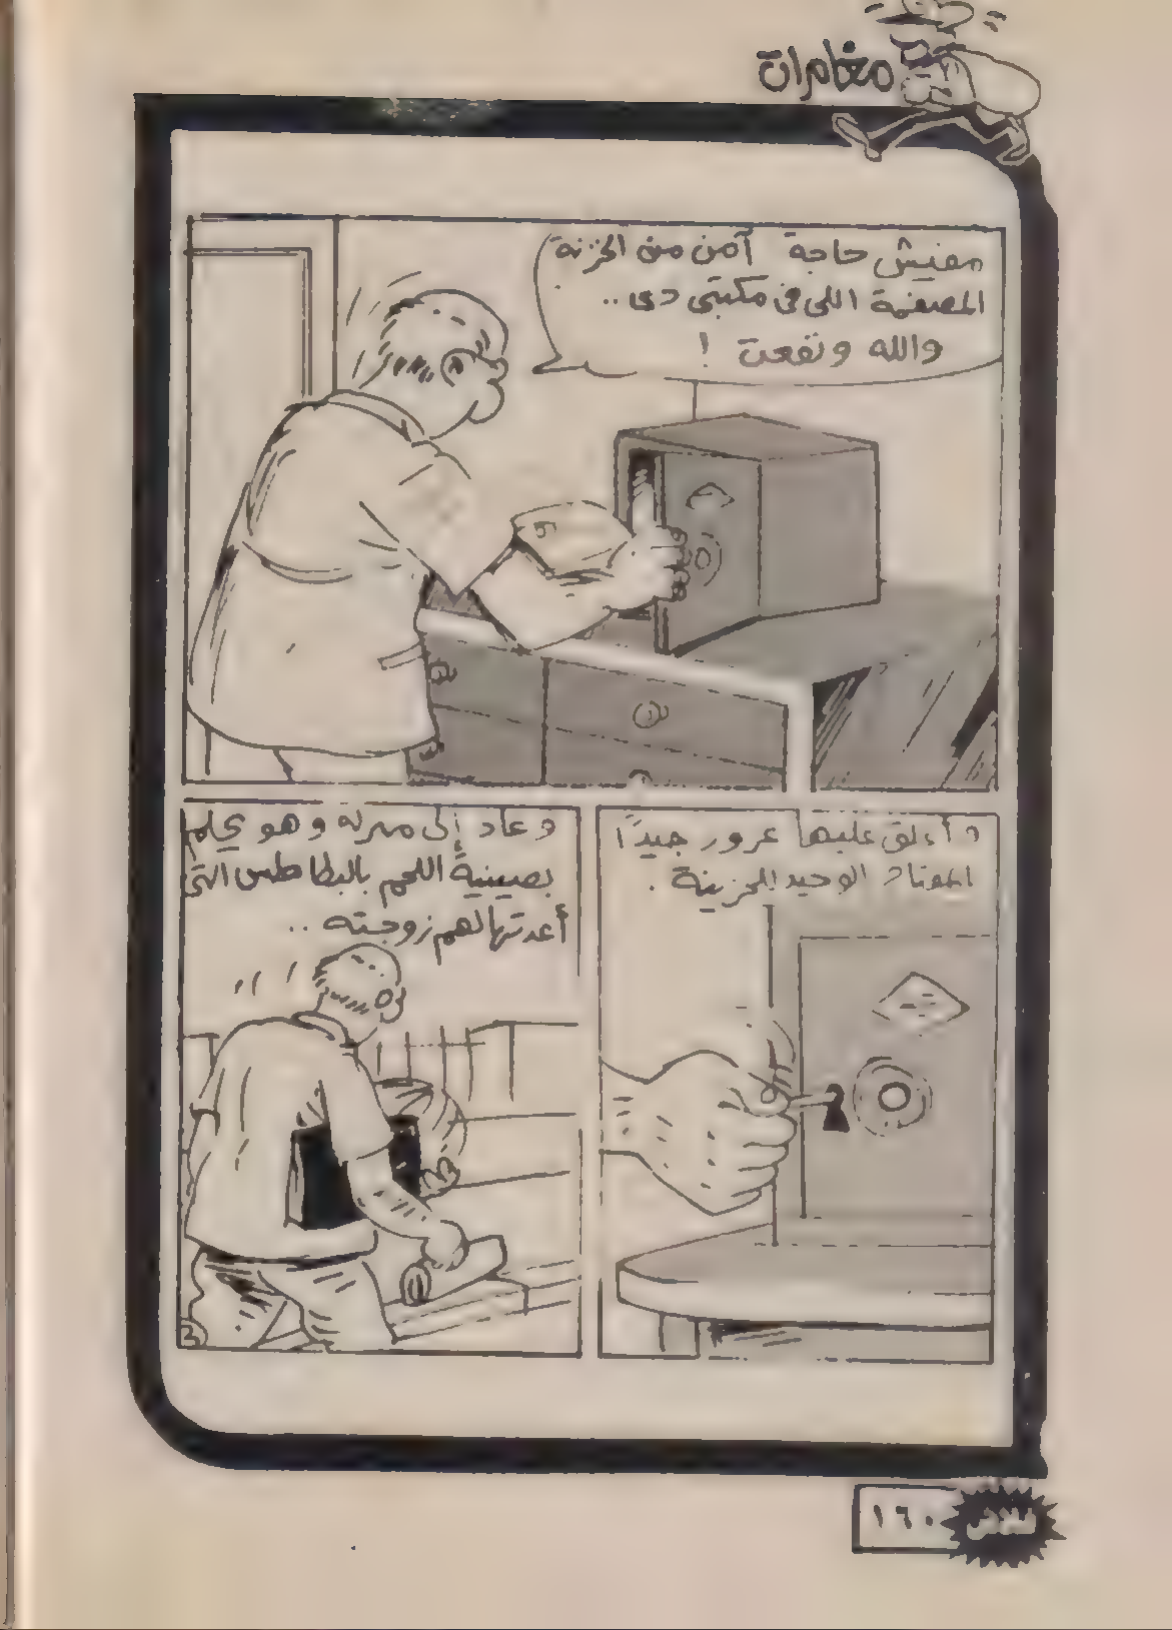 مغامرات
مفيش حاجة آمن من الخزنة
المصفحة اللى فى مكتبى دى ..
والله ونفعت !
وأغلق عليها عرور جيدًا
الوحيد للخزينة .
وعاد إلى منزله وهو يحلم
بصينية اللحم بالبطاطس التى
أعدتها لهم زوجته ..
١٦٠
فلاش